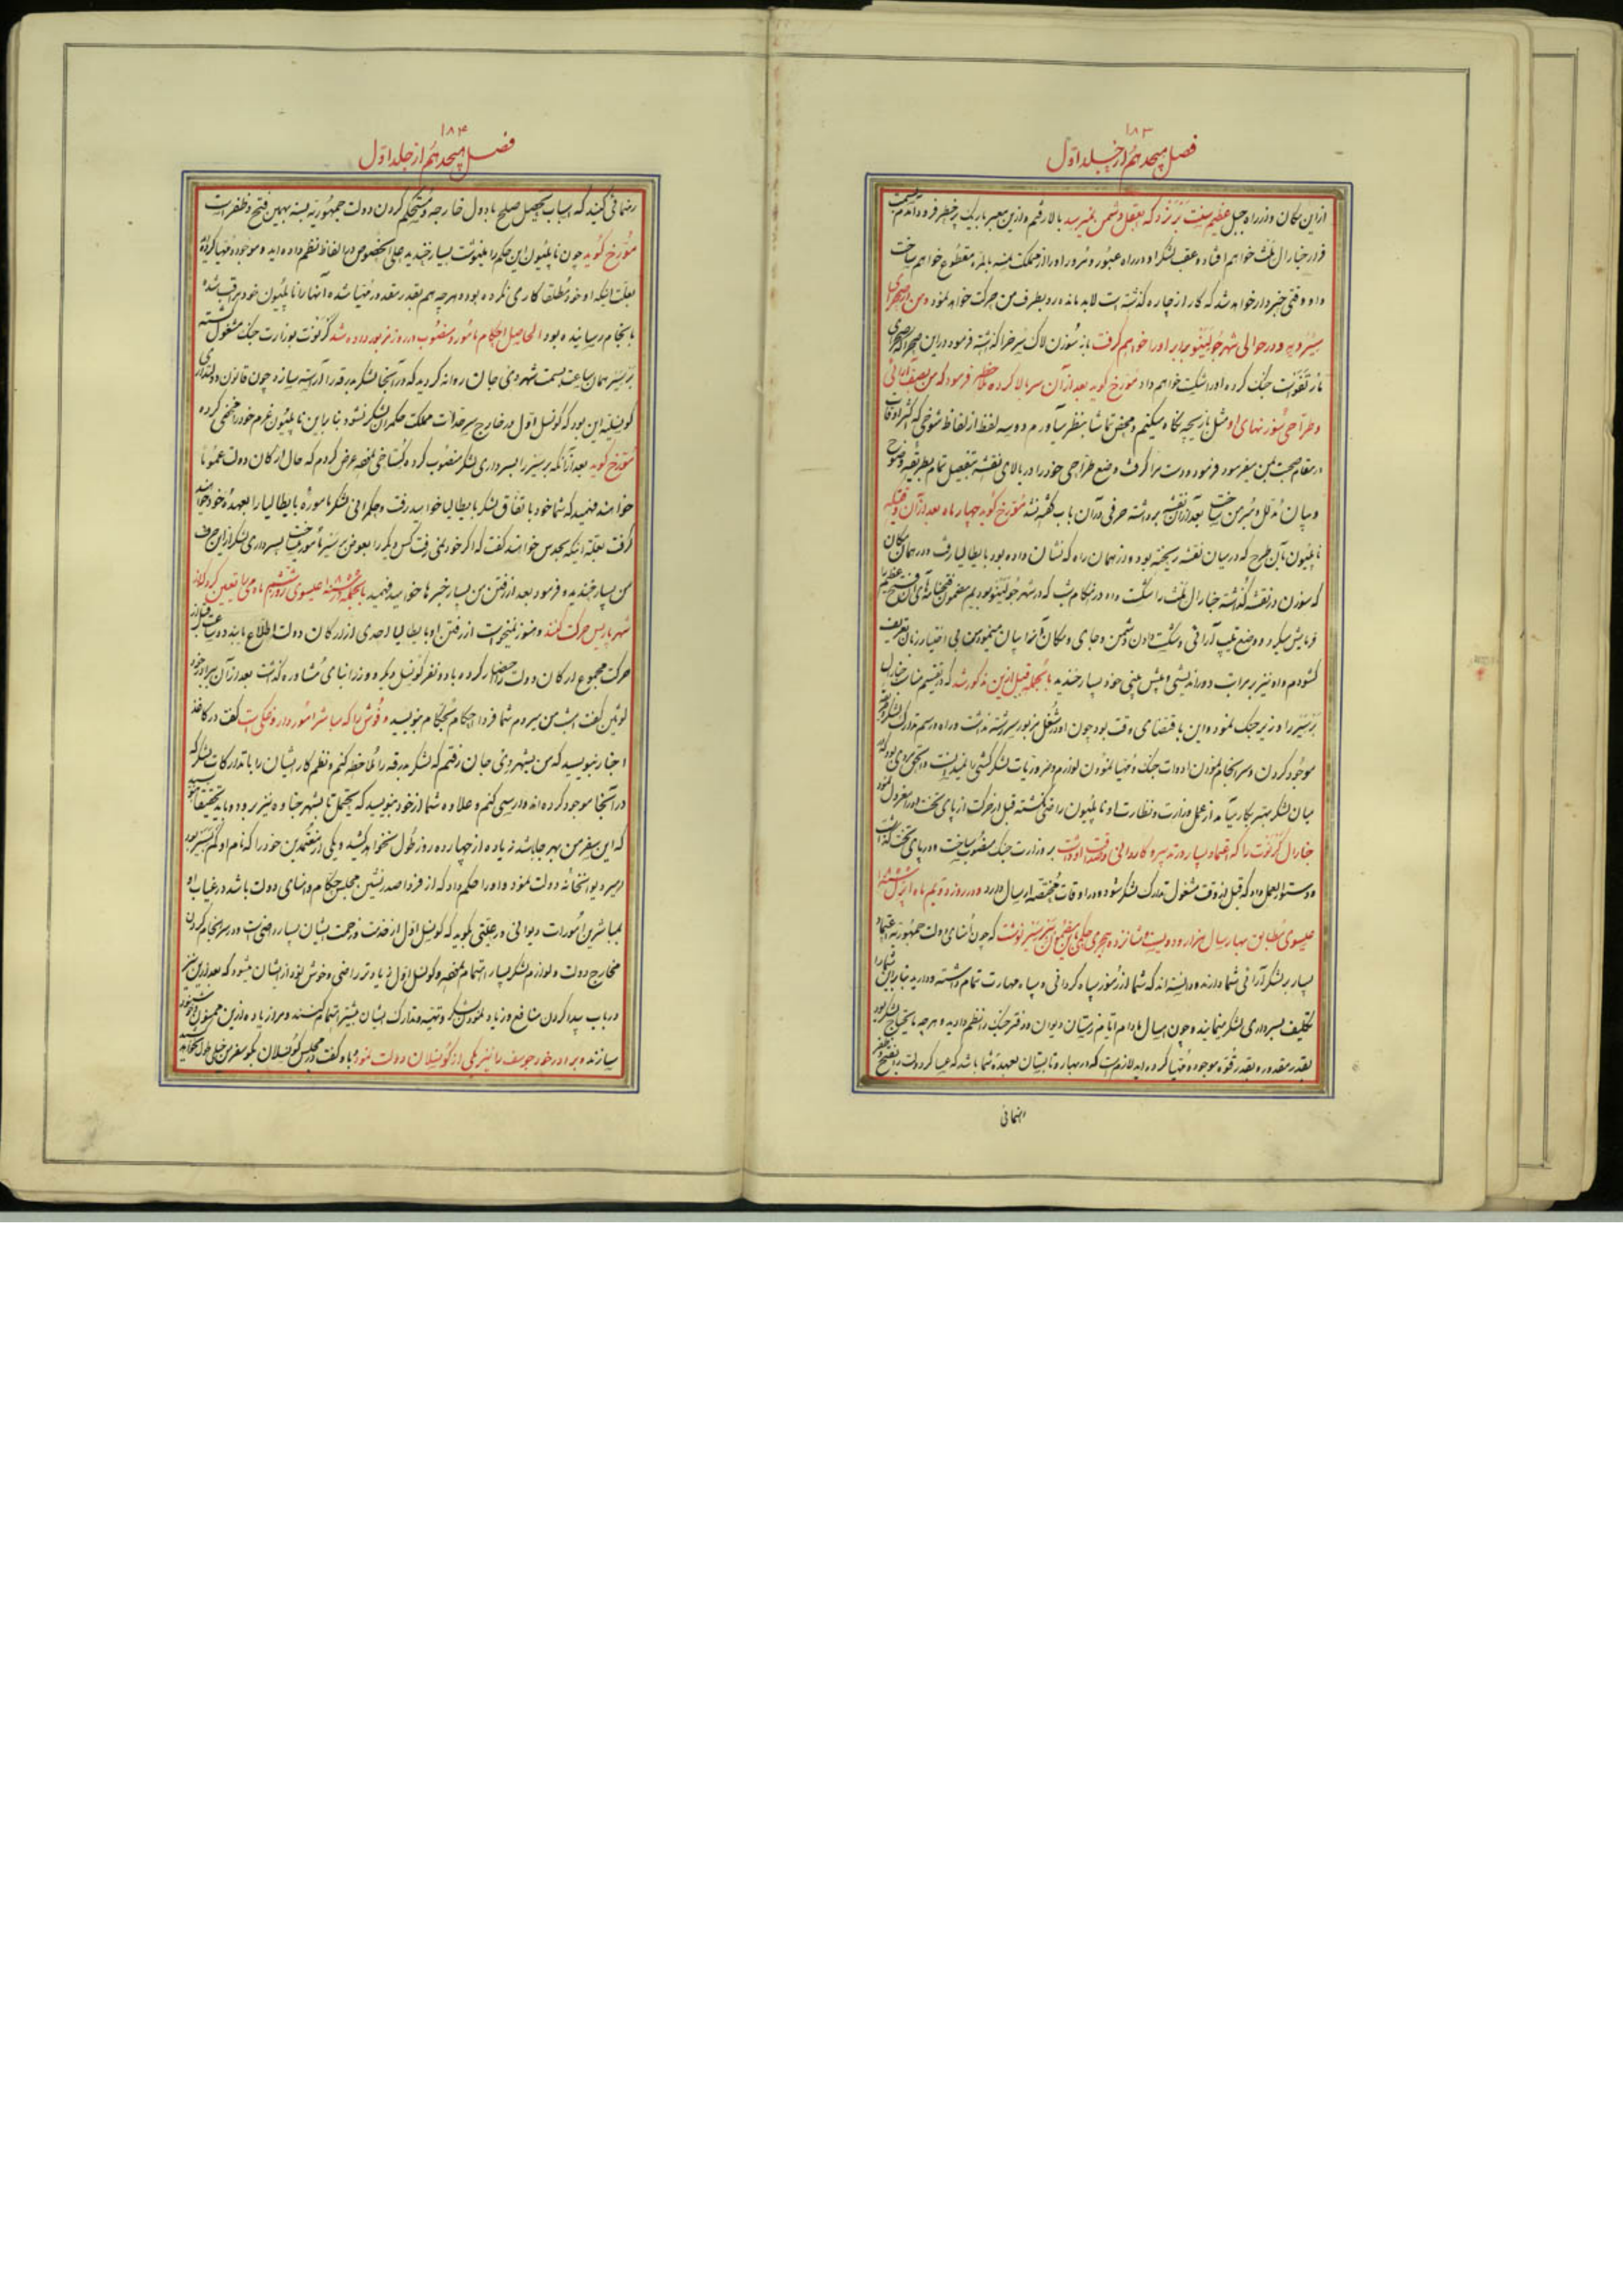 ۱۸۳
فصل هیجدهم از جلد اول
از این مکان و از راه جبل عظیم سنت برنرد که بعقل دشمن نمیرسد بالا رفتم و از این معبر باریک پرخطر فرود آمدم بسمت
قرار جنارال ملث خواهم افتاد و عقب لشکر او در راه عبور و مرور او را از مملکت نمسه بالمره مقطوع خواهم ساخت
و او وقتی خبردار خواهد شد که کار از چاره گذشته است لابد مانده رو بطرف من حرکت خواهد نمود و من در صحرای
و در حوالی شهر جولینو برابر او را خواهم گرفت باز سوزن لاک سرخ را گذشته فرمود در این صحرا که صحرای
جنگ کرده او را شکست خواهم داد مورخ گوید بعد از آن سر بالا کرده فرمود که من بصف آرائی
و طراحی سوزنهای او مثل بازیچه نگاه میکنم و محض تماشا بنظر میآورم دو سه لفظ از الفاظ شوخی که اکثر اوقات
در مقام صحبت بمن میفرمود فرمود و دست مرا گرفت وضع طراحی خود را در بالای نقشه بتفصیل تمام بطریقه وضوح
و بیان مدلل و مبرهن ساخت بعد از آن نقشه برداشته حرفی در آن باب گفته نشد مورخ گوید چهار ماه بعد از آن وقتیکه
ناپلیون بآن طرح که در میان نقشه ریخته بود و از همان راه که نشان داده بود بایطالیا رفت و در همان مکان
که سوزن در نقشه گذاشته جنارال ملث را شکست داد در هنگام شب که در شهر جولینو بودیم مضمون فتحنامه های آن فتح عظیم را
فرمایش میکرد و وضع تیپ آرائی و شکست دادن دشمن و جای و مکان آنها بیان مینمود من بی اختیار زبان بتعریف
گشودم و او نیز بر مراتب دوراندیشی و پیش بینی خود بسیار خندید بالجمله قبل از این مذکور شد که در تقسیم مناصب جنارال
را وزیر جنگ نمود و این باقتضای وقت بود چون او در شغل مزبور سررشته نداشت و راه و رسم تدارک لشکر و
موجود کردن و سرانجام نمودن ادوات جنگ و مهیا نمودن لوازم و ضروریات لشکرکشی را نمیدانست و الحق مردی بود که در
میان لشکر بهتر بکار میآمد از عمل وزارت و نظارت او ناپلیون راضی نگشته قبل از حرکت از پای تخت او را معزول نمود
جنارال کرنوت را که اعتماد بسیار در تدبیر و کاردانی و صداقت او داشت بر وزارت جنگ منصوب ساخت و در پای تخت گذاشت
و دستورالعمل داد که قبل از وقت مشغول تدارک لشکر شود و در اوقات مقتضیه ارسال دارد و در روز دویم ماه اپریل سنه ۱۸۰۰
عیسوی مطابق بهار سال هزار و دویست و شانزده هجری حکمی باین مضمون ببرسیر نوشت که چون امنای دولت جمهوریه اعتماد
بسیار بر لشکرآرائی شما دارند و دانسته اند که شما از رموز سپاه گردانی و سپاه مهارت تمام داشته و دارید بنابراین شما را
تکلیف بسرداری لشکر مینمایند و چون امسال مادام ایام زمستان دیوان و دفتر جنگ را نظم دادید و هر چه مایحتاج لشکر بود
بقدر مقدور و بقدر قوه موجود و مهیا کرده اید لازم است که در بهار و تابستان بعهده شما باشد که عساکر دولت را بفتح و ظفر
رهنمائی
۱۸۴
فصل هیجدهم از جلد اول
رهنمائی کنید که اسباب تحصیل صلح با دول خارجه و مستحکم کردن دولت جمهوریه بسته بهمین فتح و ظفر است
مورخ گوید چون ناپلیون این حکم را مینوشت بسیار خندید علی الخصوص در الفاظ نظم داده اید و موجود و مهیا کرده اید
بعلت اینکه او خود مطلقا کاری نکرده بود و هر چه هم بقدر مقدور مهیا شده آنها را ناپلیون خود مراقب شده
بانجام رسانیده بود الحاصل احکام مامور و منصوب در روز مزبور داده شد کرنوت بوزارت جنگ مشغول گشته
برسیر همان ساعت بسمت شهر دی جان روانه گردید که در آنجا لشکر بدرقه را آراسته سازد چون قانون دولتداری
کونسلیه این بود که کونسل اول در خارج سرحدات مملکت حکمران لشکر نشود بنابراین ناپلیون عزم خود را مخفی کرده
مورخ گوید بعد از آنکه برسیر را بسرداری لشکر منصوب کرد گستاخی نموده عرض کردم که حال ارکان دولت عموماً
خواهند فهمید که شما خود باتفاق لشکر بایطالیا خواهید رفت و حکمرانی لشکر ماموره بایطالیا را بعهده خود خواهید
گرفت بعلت اینکه بحدس خواهند گفت که اگر خود نمی رفت کس دیگر را بعوض برسیر مامور میساخت بسرداری لشکر از این حرف
من بسیار خندیده فرمود بعد از رفتن من بسیار خبرها خواهید فهمید بالجمله در سنه ۱۸۰۰ عیسوی روز ششم ماه می را تعیین کرد که از
شهر پاریس حرکت کنند و هنوز نمیخواست از رفتن او بایطالیا احدی از ارکان دولت اطلاع یابند دو ساعت قبل از
حرکت مجموع ارکان دولت را احضار کرده با دو نفر کونسل دیگر و وزرا بنای مشاوره گذاشت بعد از آن ببرادر خود
لوئین گفت امشب من میروم شما فردا احکام باحکام بنویسید و فوشی را که مباشر امور داروغگی است گفت در کاغذ
اخبار بنویسید که من بشهر دی جان رفتم که لشکر بدرقه را ملاحظه کنم و نظم کار ایشان را با تدارکات لشکر که
در آنجا موجود کرده اند وارسی کنم و علاوه شما از خود بنویسید که یحتمل تا بشهر جناوه نیز برود و باید تحقیقاً بنویسید
که این سفر من بهر جا باشد زیاده از چهارده روز طول نخواهد کشید و یکی از معتمدین خود را که نام او بود
در دیوانخانه دولت نمود و او را حکم داد که از فردا صدرنشین مجلس حکام و امنای دولت باشد در غیاب او
بمباشرین امورات دیوانی و رعیتی بگوید که کونسل اول از خدمت و زحمت ایشان بسیار راضی است و در سرانجام کردن
مخارج دولت و لوازم لشکر بسیار اهتمام نموده و کونسل اول زیادتر راضی و خوش نود از ایشان میشود که بعد از این نیز
در باب پیدا کردن منافع و زیاد نمودن لشکر و تهیه و تدارک ایشان بیشتر اهتمام کنند و مرا زیاده از این ممنون و خوشنود
سازند و برادر خود جوسف را نیز یکی از کونسلان دولت نمود باو گفت در مجلس کونسلان بگو سفر من خیلی طول نخواهد کشید